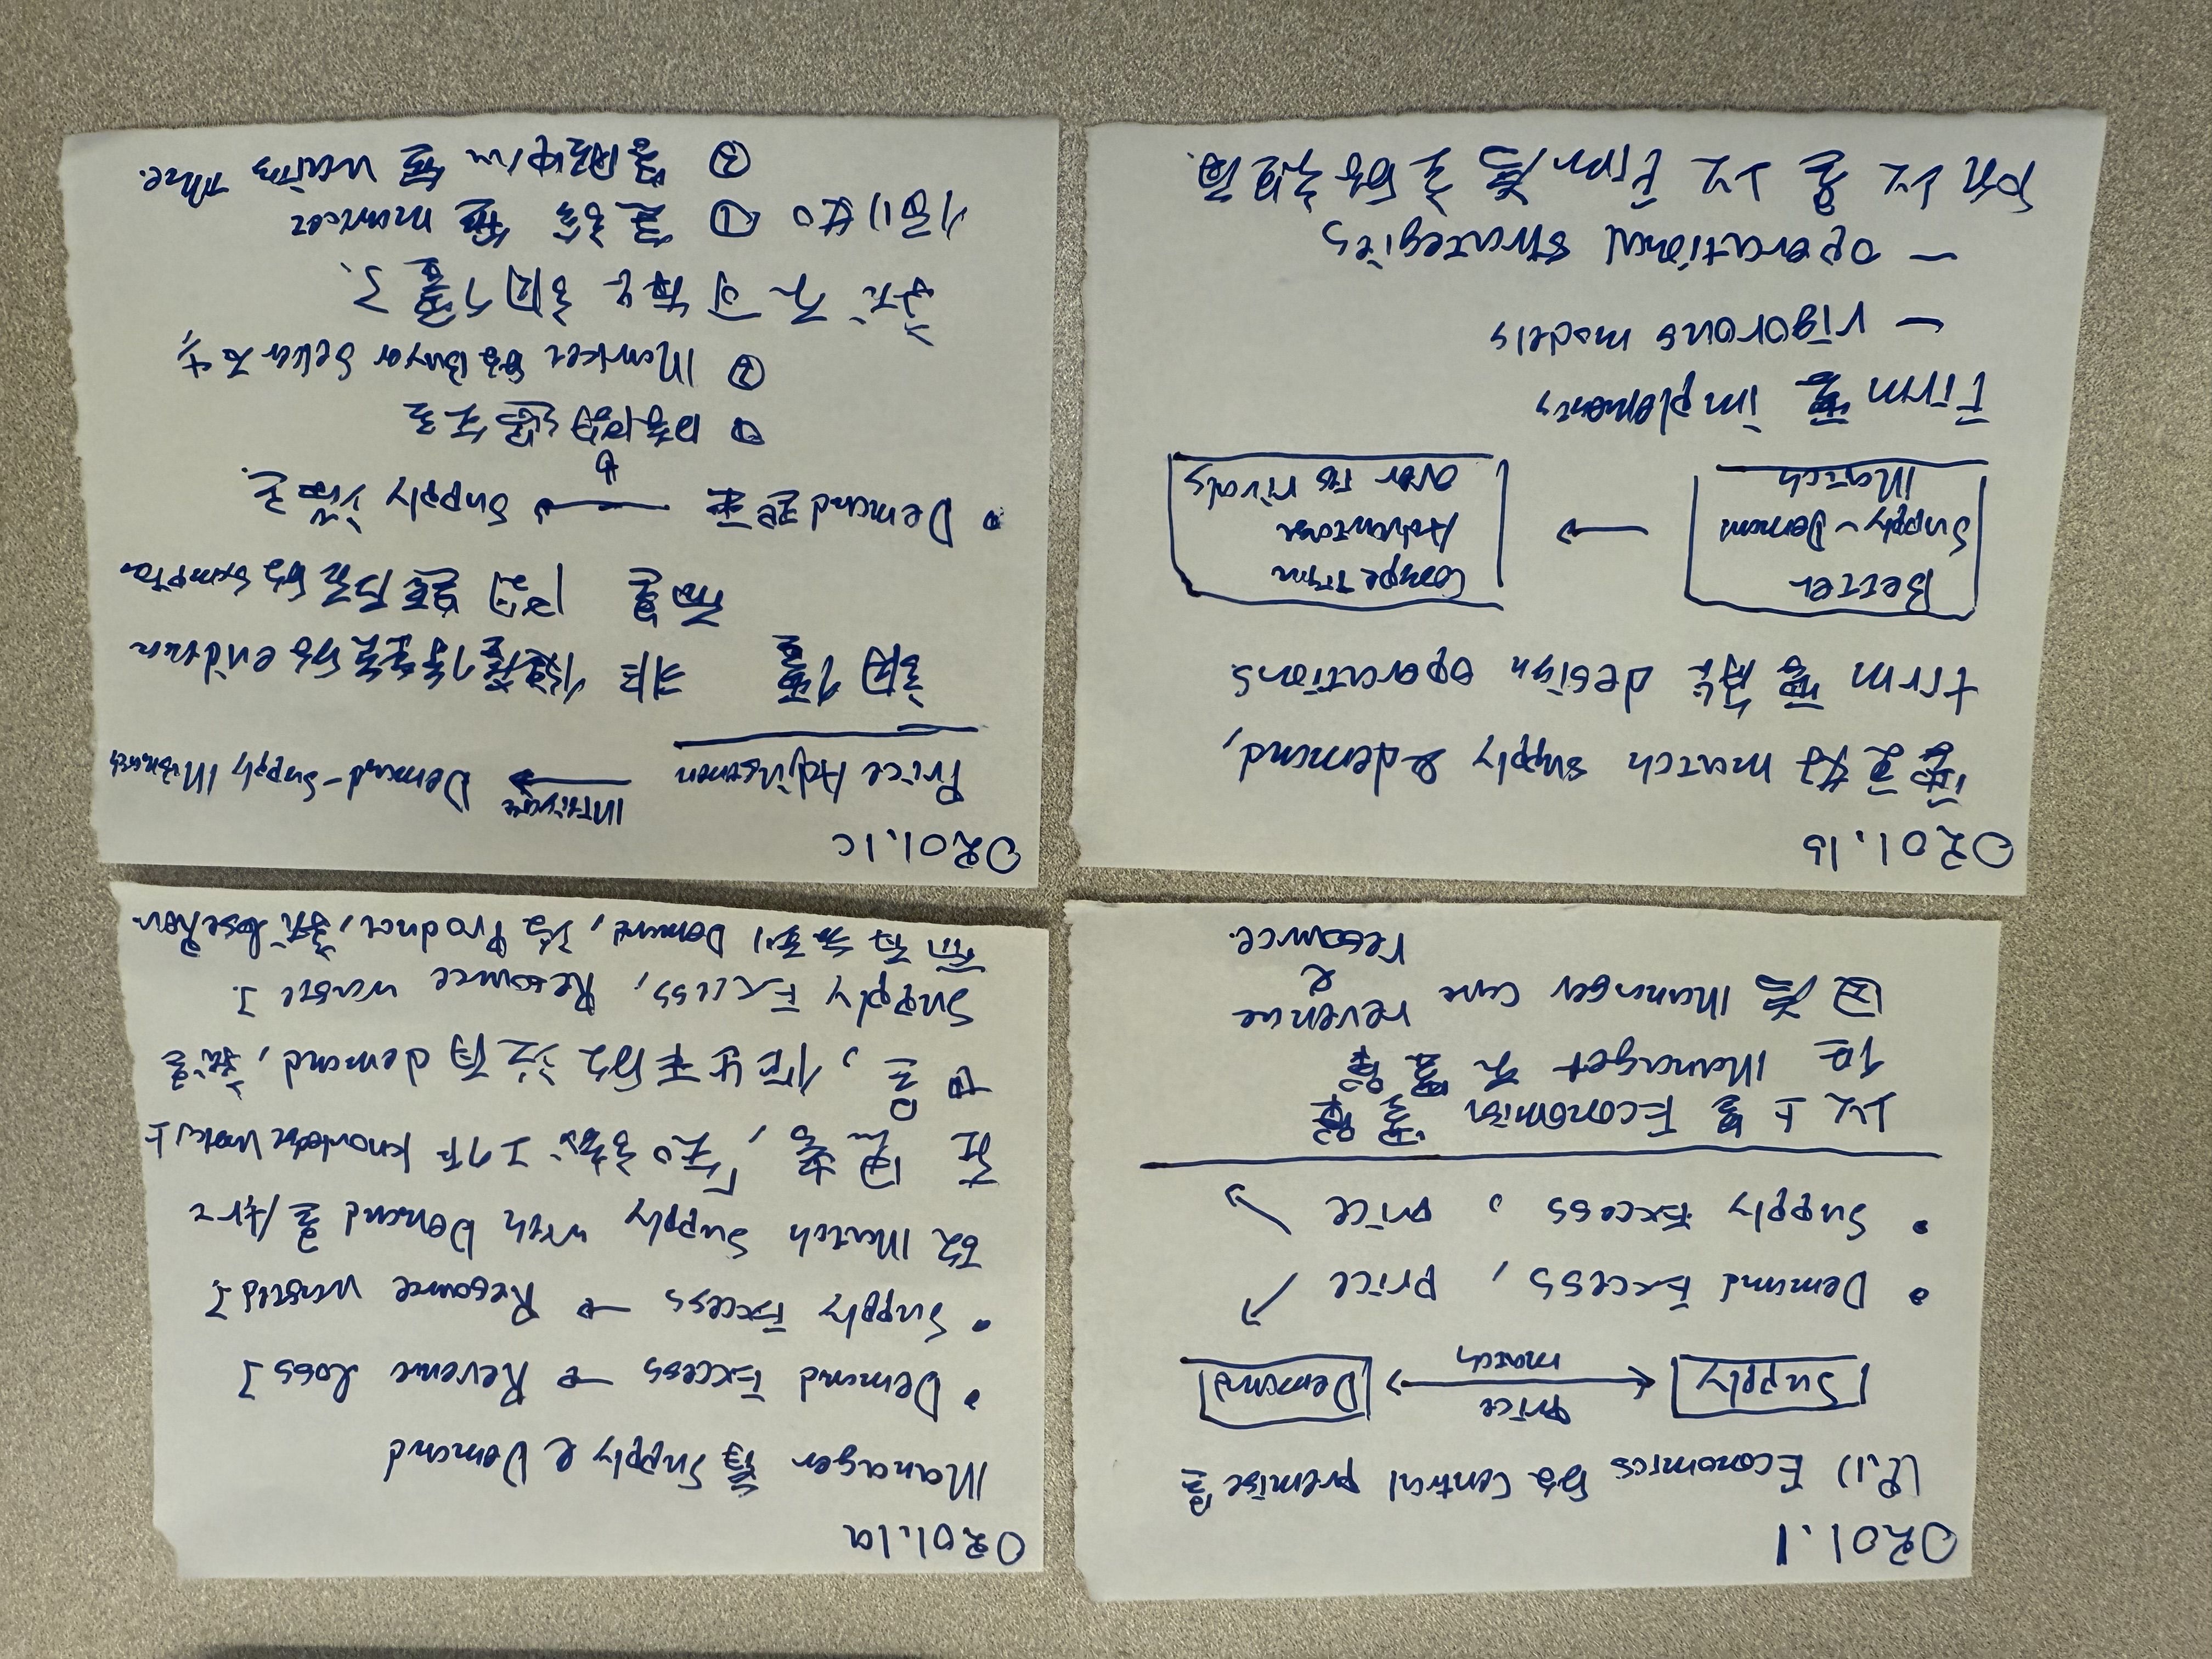 0201.1
(P.1) Economics 的 Central premise 是
Supply
price
match
Demand
• Demand Excess, price ↗
• Supply Excess, price ↘
以上是 Economist 需要
但 Manager 不需要
因為 Manager care revenue
&
resource.
0201.1a
Manager 看 Supply & Demand
• Demand Excess → Revenue loss
• Supply Excess → Resource wasted
故 Match Supply with Demand 是 Art
在思考,「知識工作 knowledge work」上
也是, 作出來的沒有 demand, 就是
Supply Excess, Resource waste
而有 Demand, 沒 Product, 就 lose Rev
0201.1b
要更好 match supply & demand,
firm 要能 design operations.
Better
Supply-Demand
Match
→
Competitive
Advantage
over its rivals
Firm 要 implements
- rigorous models
- operational strategies
所以是以 Firm 為主的視角.
0201.1c
Price Adjustment
Mitigate
→ Demand-Supply Mismatch
調價 非 健產的 evidence
而是 問題的 symptom
• Demand 起來 → Supply 滿足.
① 時間過
② Market 的 Buyer Seller 太少
就不可能 調價了.
例如 ① 急診 無 market
② 客服中心 無 waiting time.